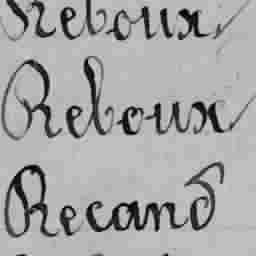 Reboux
Reboux
Recand